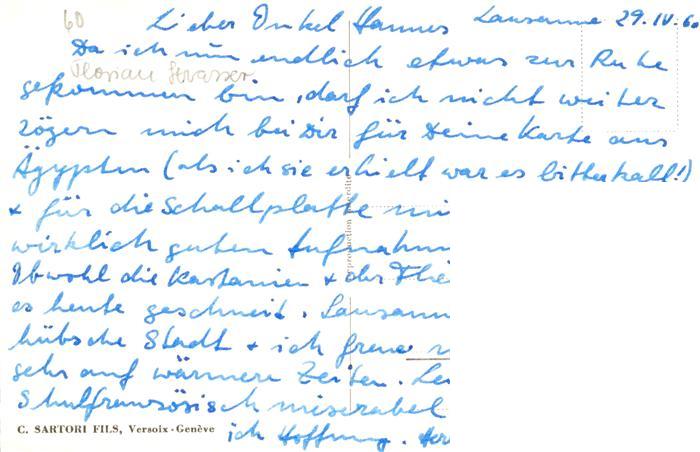 60
Lieber Onkel Hannes Lausanne 29.IV.60
Da ich nun endlich etwas zur Ruhe
Florian
gekommen bin, darf ich nicht weiter
zögern mich bei Dir für Deine Karte aus
Ägypten (als ich sie erhielt war es bitterkalt!)
+ für die Schallplatte mi
wirklich guten Aufnahm
Obwohl die Kastanien + der Flie
es heute geschneit. Lausann
hübsche Stadt + ich freue
sehr auf wärmere Zeiten. Lei
Schulfranzösisch miserabel
ich Hoffnung. Her
C. SARTORI FILS, Versoix-Genève
reproduction interdite